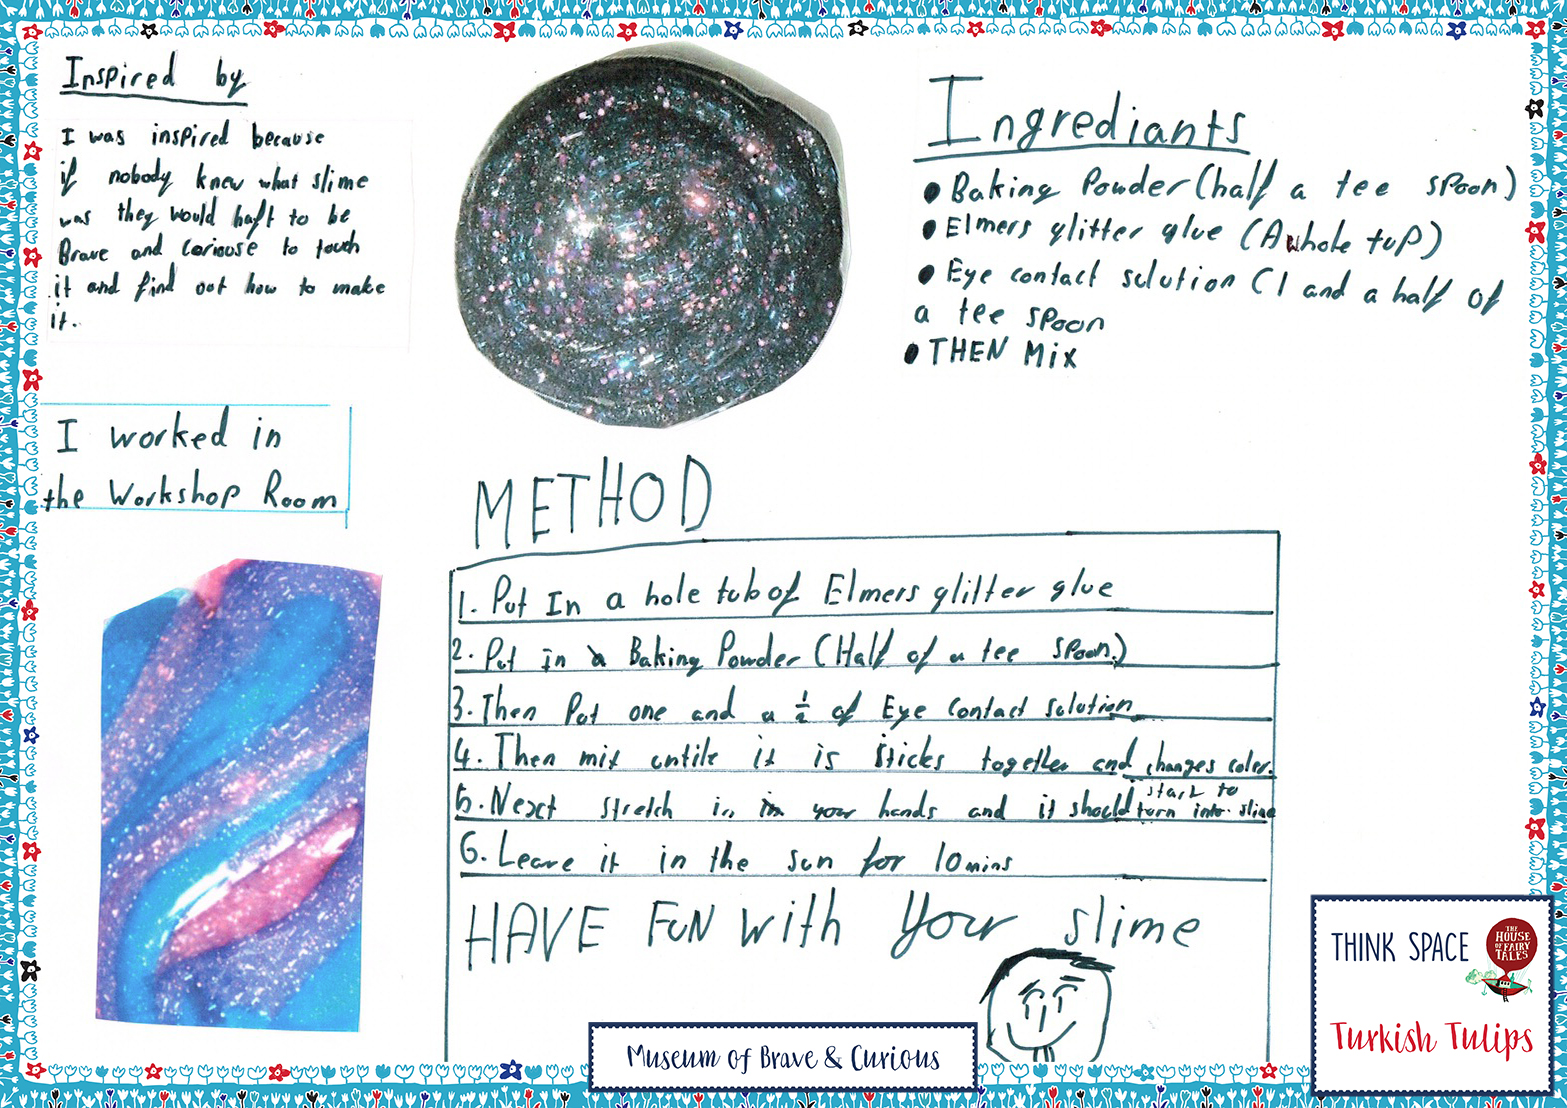 Inspired by
I was inspired because
if nobody knew what slime
was they would haft to be
Brave and cariouse to touch
it and find out how to make
it.
I worked in
the Workshop Room
Ingrediants
● Baking Powder (half a tee spoon)
● Elmers glitter glue (A whole tup)
● Eye contact solution (1 and a half of
a tee spoon
● THEN Mix
METHOD
1. Put In a hole tub of Elmers glitter glue
2. Put in a Baking Powder (Half of a tee spoon.)
3. Then Put one and a ½ of Eye Contact solution
4. Then mix untile it is sticks together and changes coler.
5. Next stretch in in your hands and it should start to
turn into slime
6. Leave it in the sun for 10 mins
HAVE FUN with Your slime
Museum of Brave & Curious
THINK SPACE
THE
HOUSE
OF FAIRY
TALES
Turkish Tulips